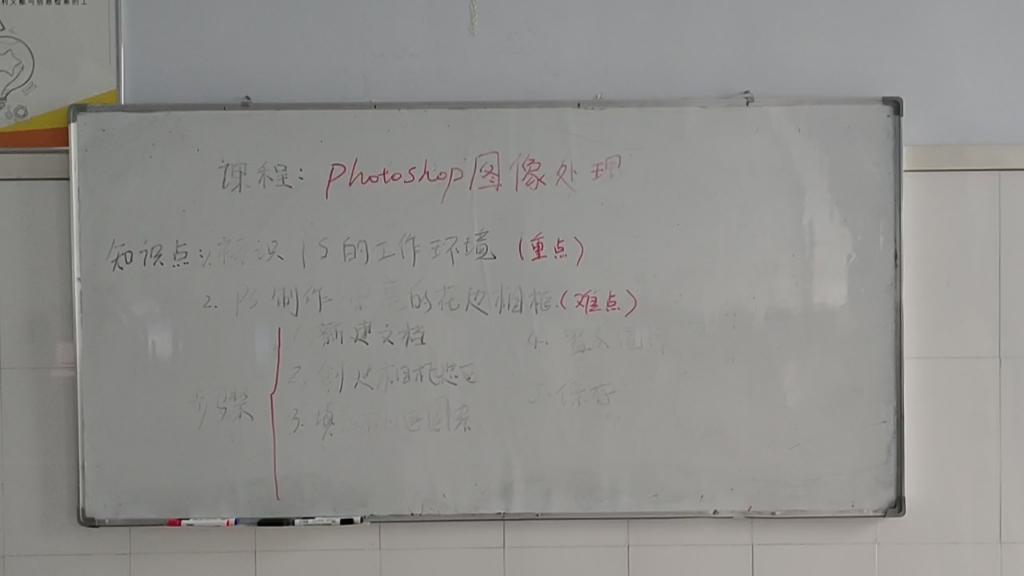 课程: photoshop图像处理
知识点: 识 PS的工作环境 (重点)
2. PS制作 的花边相框(难点)
1. 新建文档
4. 置入
步骤
2. 创建相框选区
5. 保存
3. 填 图案